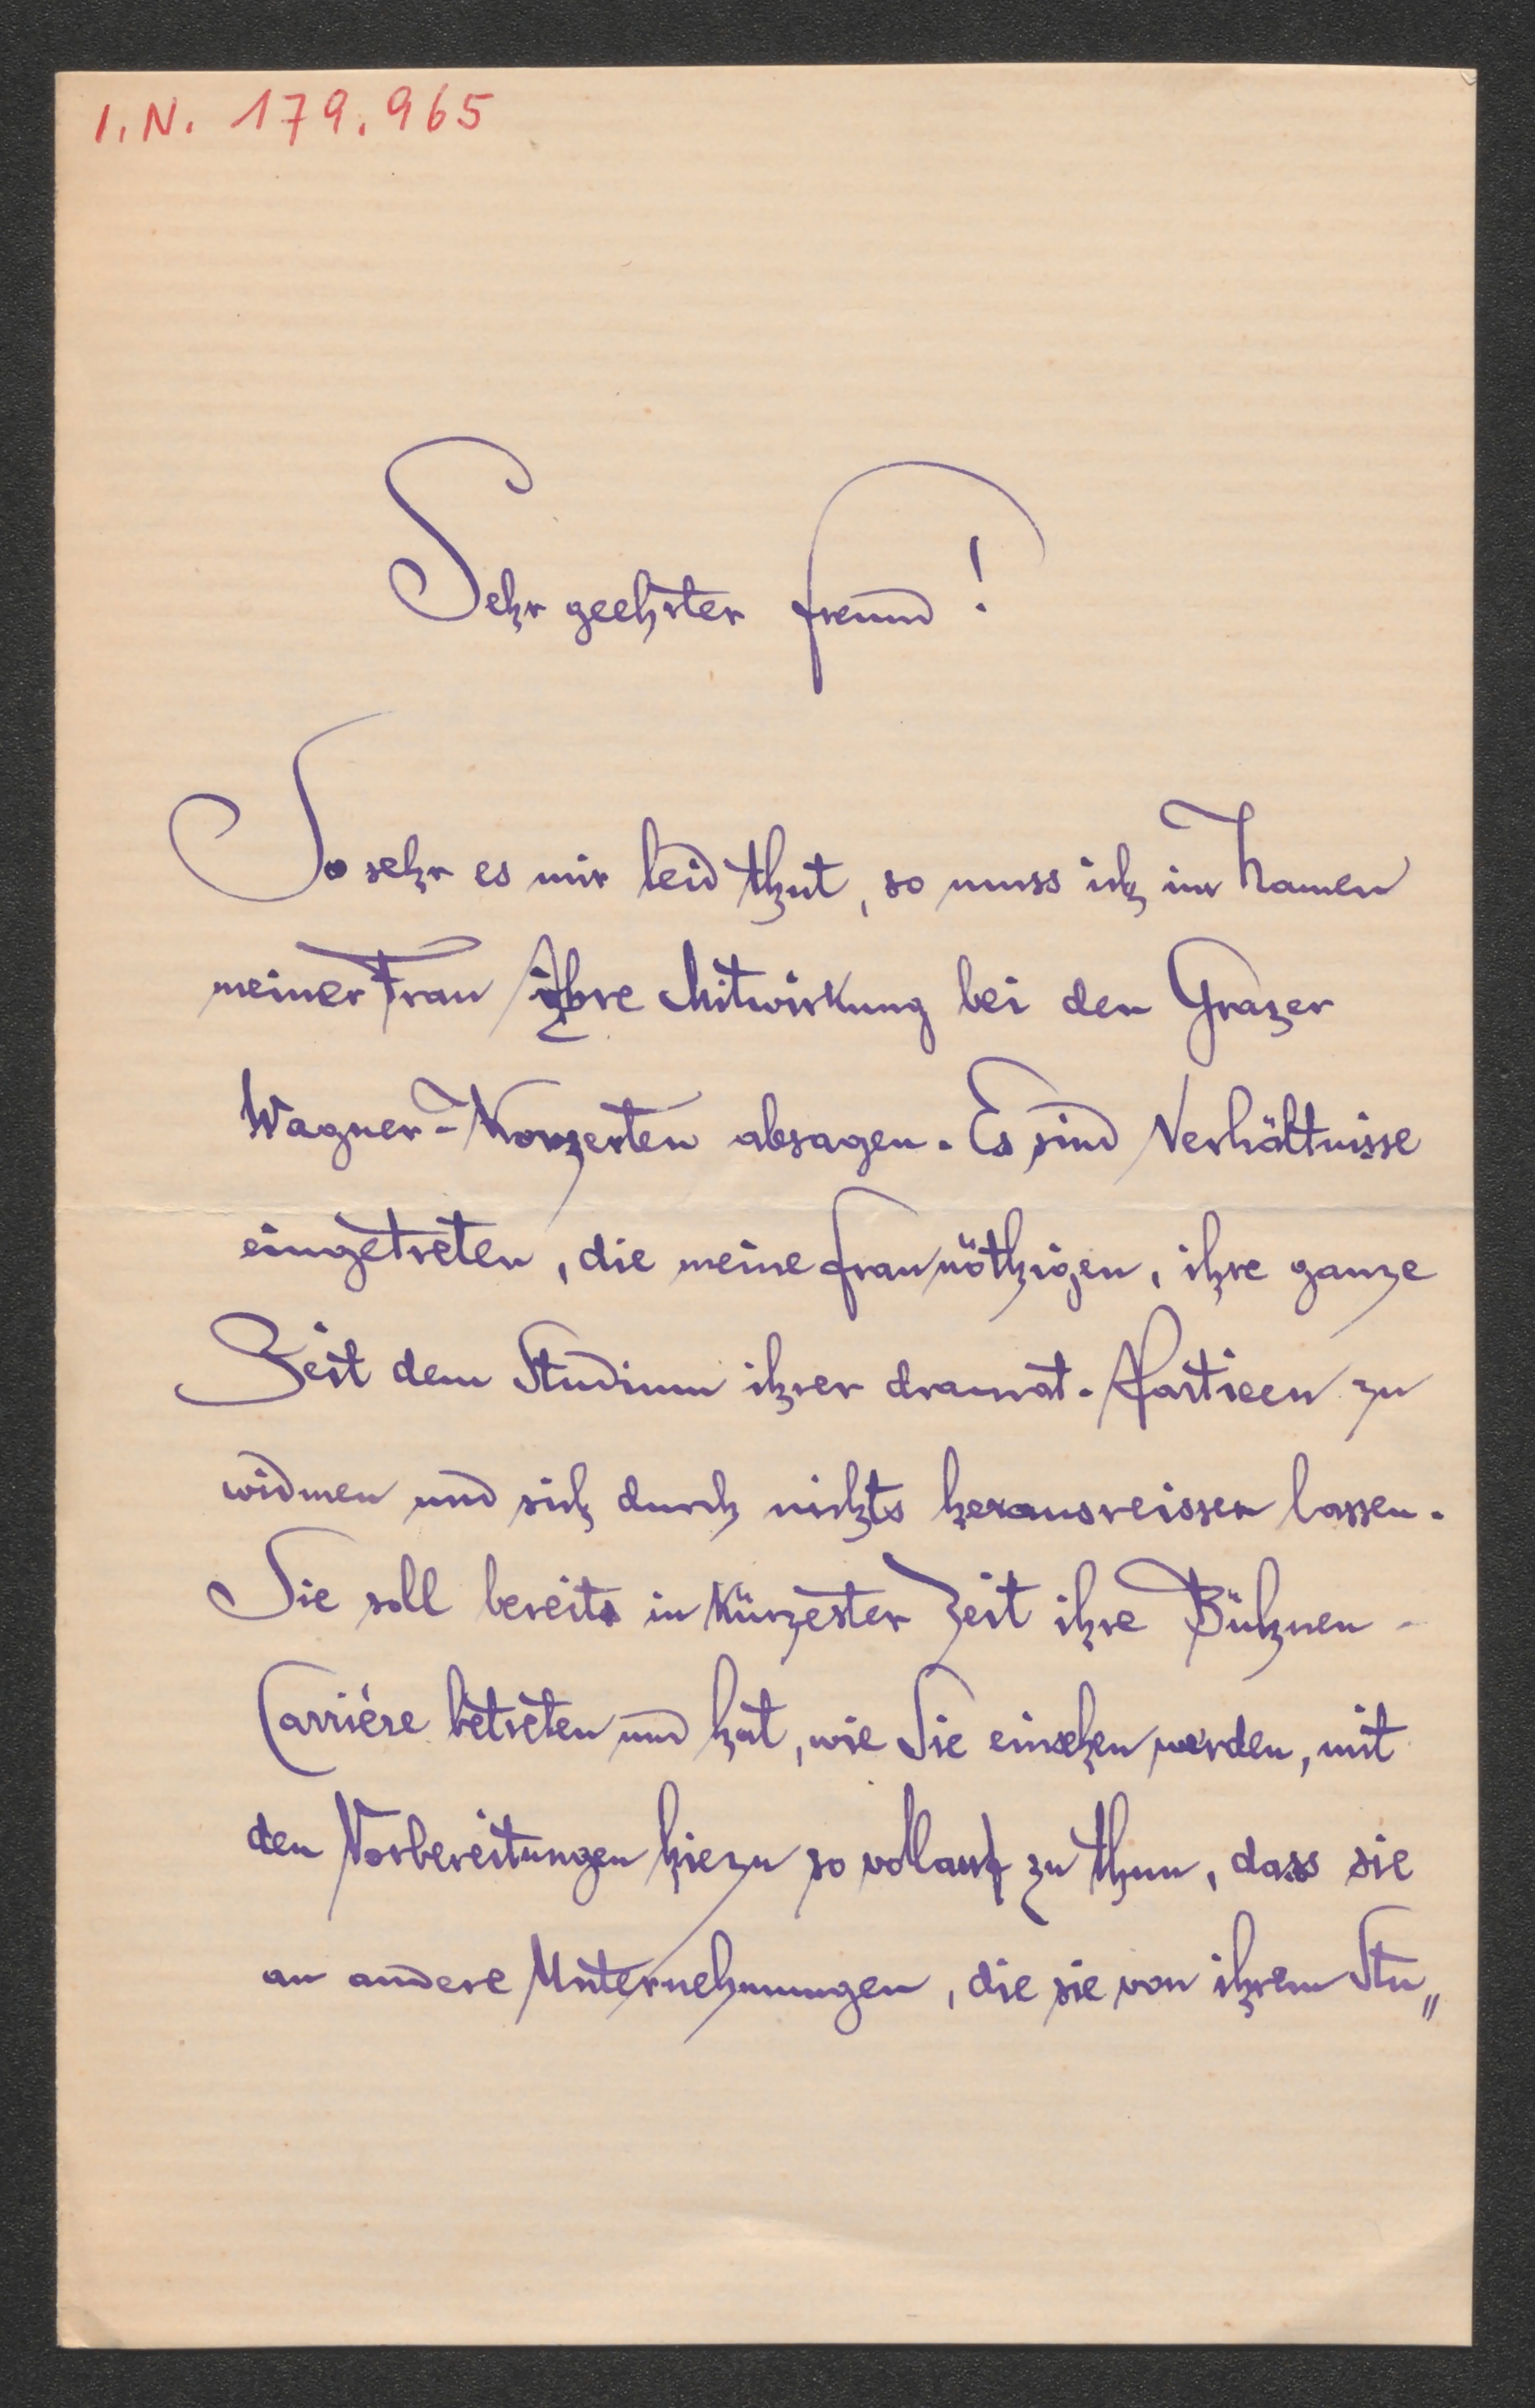 I.N. 179.965
Sehr geehrter Freund!
So sehr es mir leid thut, so muss ich im Namen
meiner Frau ihre Mitwirkung bei den Grazer
Wagner-Konzerten absagen. Es sind Verhältnisse
eingetreten, die meine Frau nöthigen, ihre ganze
Zeit dem Studium ihrer dramat. Partieen zu
widmen und sich durch nichts herausreissen lassen.
Sie soll bereits in kürzester Zeit ihre Bühnen-
Carriére betreten und hat, wie Sie einsehen werden, mit
den Vorbereitungen hiezu so vollauf zu thun, dass sie
an andere Unternehmungen, die sie von ihrem Stu„